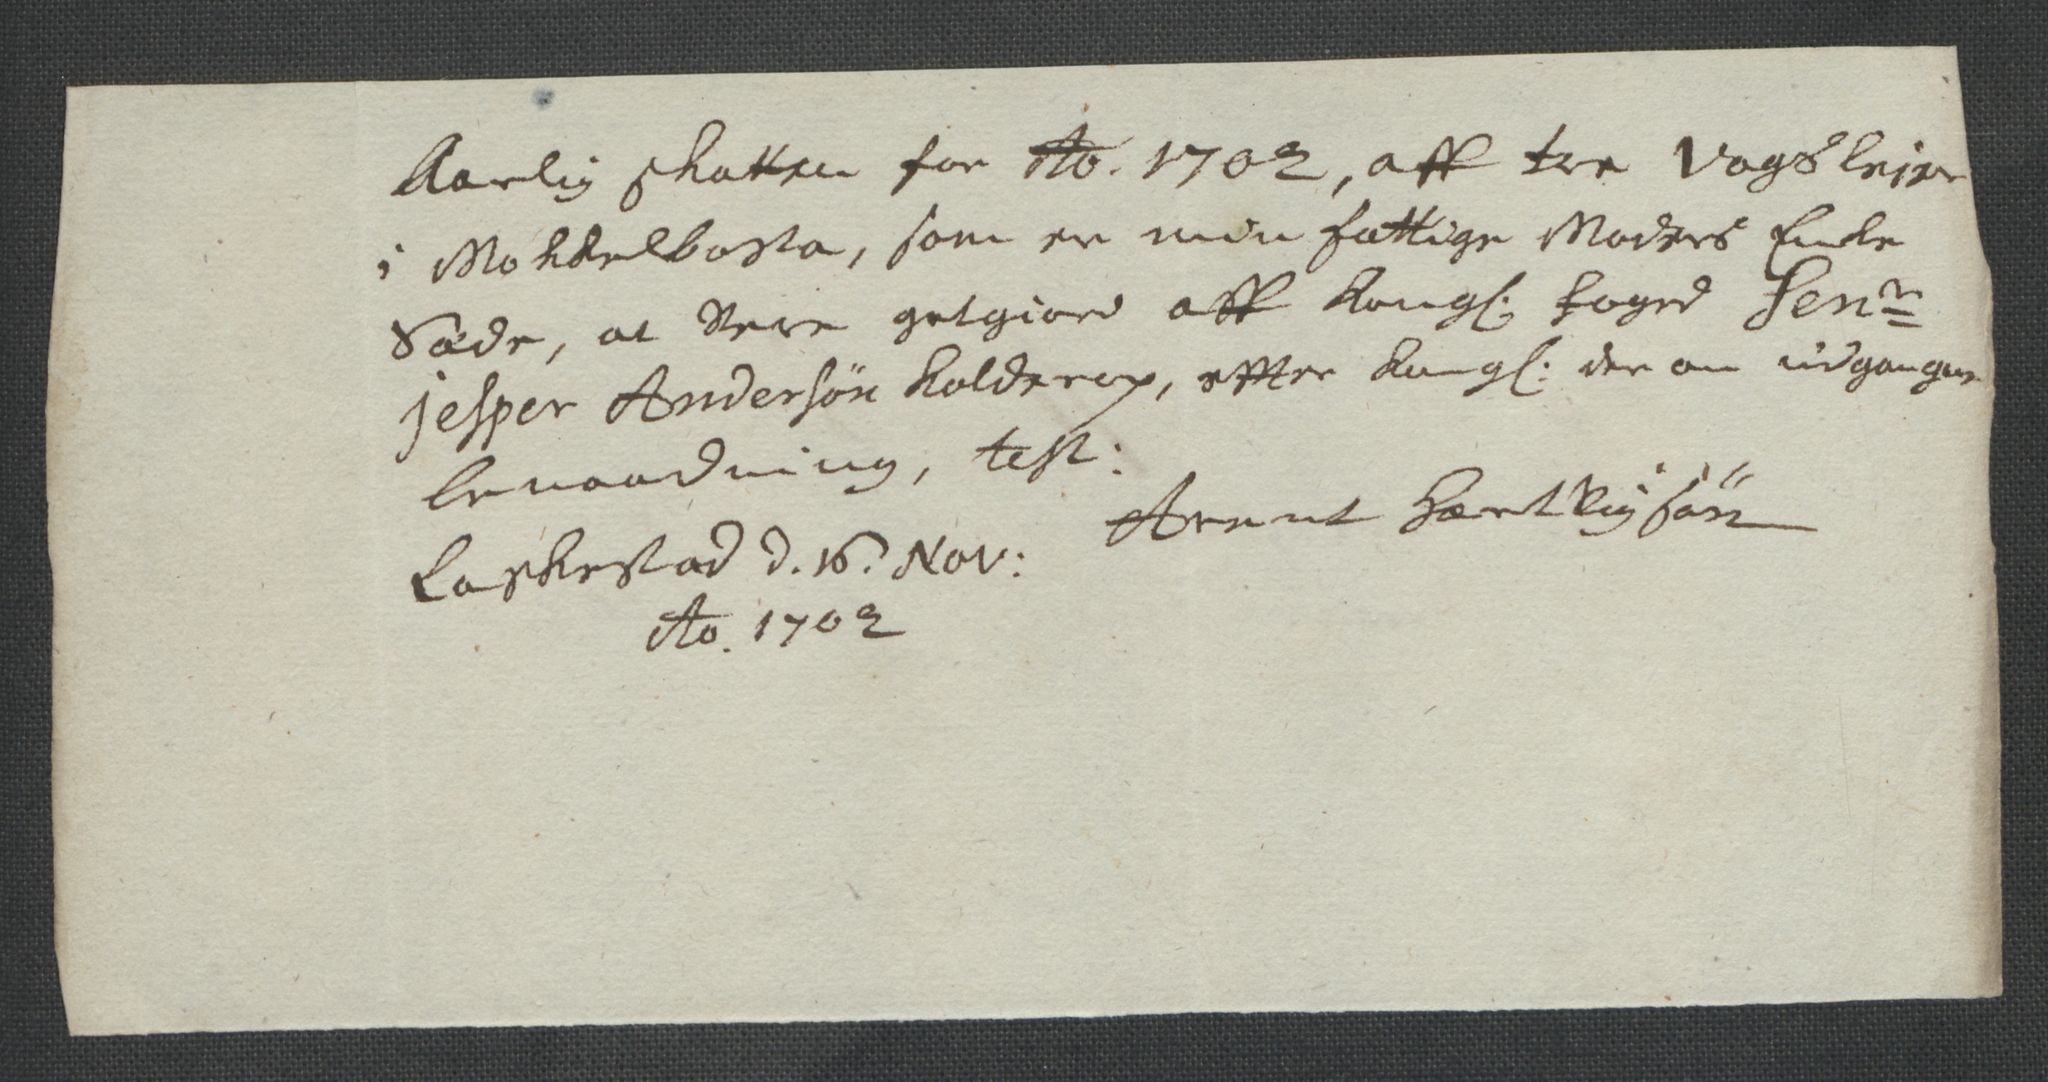 Aarlig skatten for Ao. 1702, aff tre Vogs leje
i Mohkelbosta, som er min fattige Moders Encke
Sæde, at vere  giord aff Kongl: foged Sen:r
Jesper Andersön Kolderop, efter Kongl: der om udgangne
benaadning, test:
Arent Hartvigsön
Laskestad d. 16. Nov:
Ao. 1702